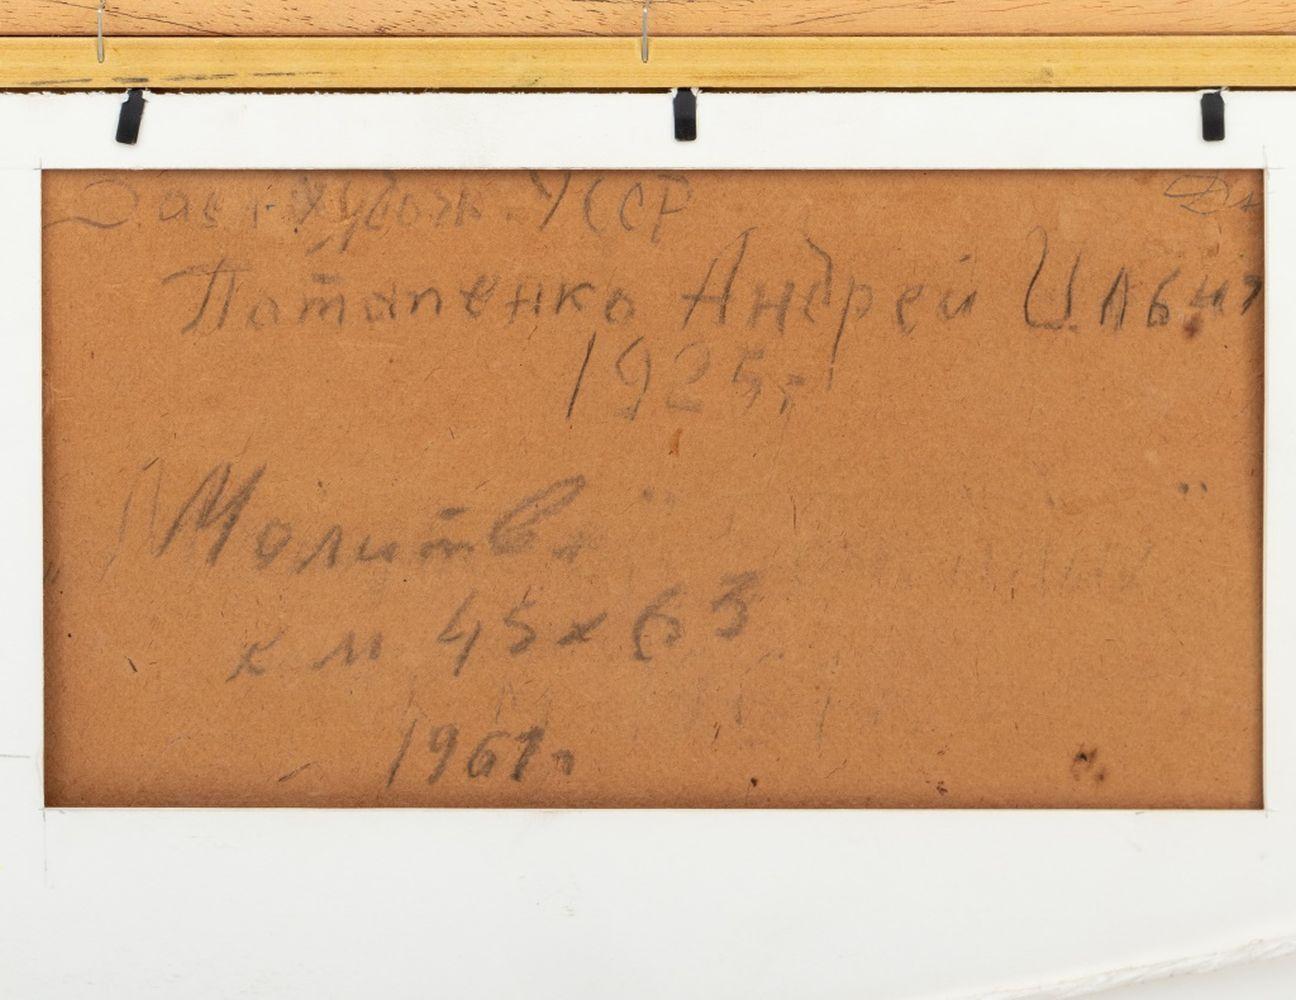 Засл. худож. УССР
Потапенко Андрей Ильич
1925 г
Молитва
к м 45 х 63
1961 г